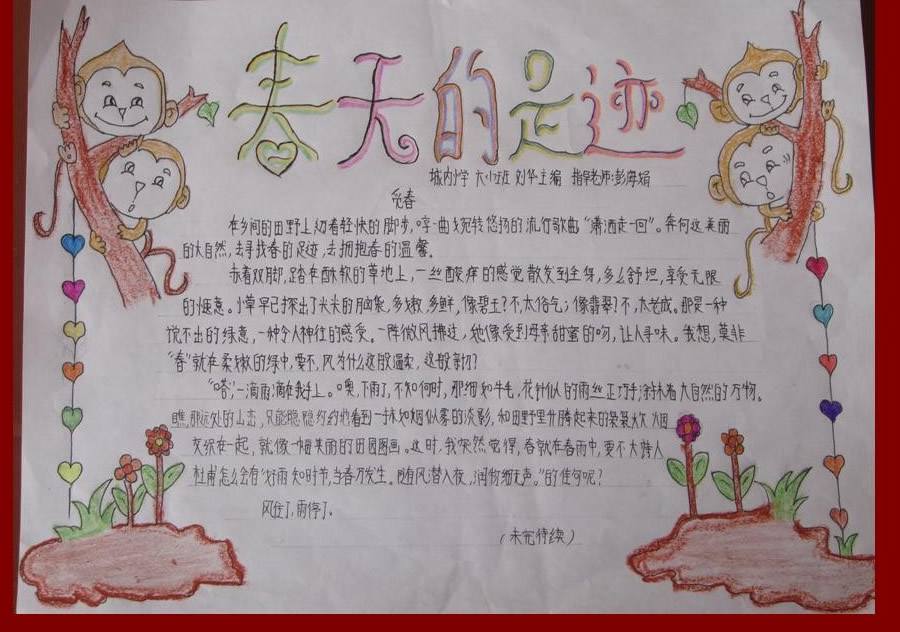 春天的足迹
城内小学 六(2)班 刘华主编 指导老师:彭海娟
觅春
在乡间的田野上,幼着轻快的脚步,哼一曲宛转悠扬的流行歌曲“潇洒走一回”。奔向这美丽
的大自然,去寻找春的足迹,去拥抱春的温馨。
赤着双脚,踏在酥软的草地上,一丝酸痒的感觉散发到全身,多么舒坦,享受无限
的惬意。小草早已探出了尖尖的脑袋,多嫩,多鲜,像碧玉?不,太俗气;像翡翠?不,太老成。那是一种
说不出的绿意,一种令人神往的感受。一阵微风拂过,她像受到母亲甜蜜的吻,让人寻味。我想,莫非
“春”就在柔嫩的绿中,要不,风为什么这般温柔,这般亲切?
“嗒”,一滴雨洒在我手上。噢,下雨了,不知何时,那细如牛毛,花针似的雨丝正巧手涂抹着大自然的万物。
瞧,那远处的山峦,只能隐隐约约的看到一抹如烟似雾的淡影,和田野里升腾起来的袅袅炊烟
交织在一起,就像一幅美丽的田园图画。这时,我突然觉得,春就在春雨中,要不大诗人
杜甫怎么会有“好雨知时节,当春乃发生。随风潜入夜,润物细无声。”的佳句呢?
风住了,雨停了。
(未完待续)